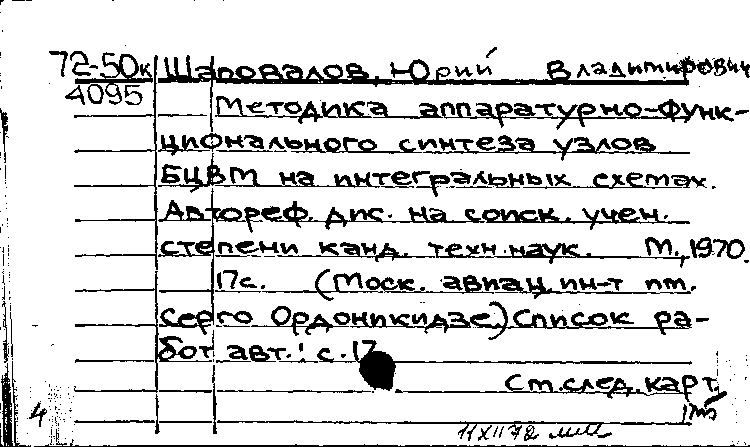 72-50к Шаповалов, Юрий Владимирович
4095 Методика аппаратурно-функ-
ционального синтеза узлов
БЦВМ на интегральных схемах.
Автореф. дис. на соиск. учен.
степени канд. техн. наук. М., 1970.
17с. (Моск. авиац. ин-т им.
Серго Орджоникидзе.) Список ра-
бот авт.: с. 17
См. след. карт.
4
11 XII 72